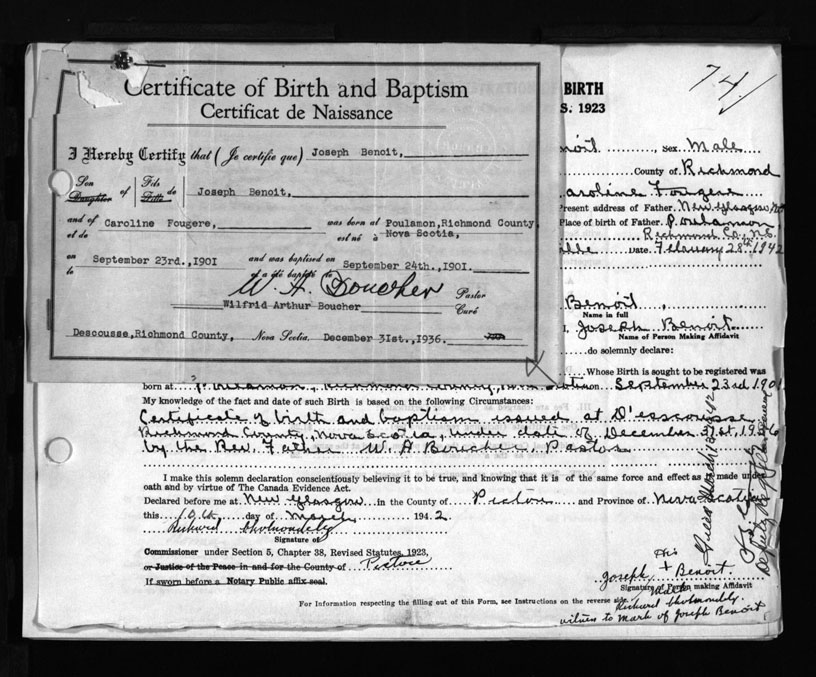 Certificate of Birth and Baptism
Certificat de Naissance
I Hereby Certify that (Je certifie que) Joseph Benoit,
Son Daughter of Fils Fille de Joseph Benoit,
and of et de Caroline Fougere, was born at est né à Poulamon, Richmond County Nova Scotia,
on le September 23rd., 1901 and was baptised on et a été baptisé le September 24th., 1901.
W. A. Boucher Pastor
Wilfrid Arthur Boucher Curé
Descousse, Richmond County, Nova Scotia, December 31st., 1936.
74
BIRTH
S. 1923
Sex Male
County of Richmond
Caroline Fougere
Present address of Father New Glasgow, NS
Place of birth of Father Poulamon
Richmond Co., N.S.
Date February 28th 1942
Benoit,
Name in full
I, Joseph Benoit
Name of Person Making Affidavit
do solemnly declare:
Whose Birth is sought to be registered was
born at Poulamon, Richmond County, Nova Scotia on September 23rd 1901
My knowledge of the fact and date of such Birth is based on the following Circumstances:
Certificate of birth and baptism issued at D'escousse
Richmond County, Nova Scotia, under date of December 31st, 1936
by the Rev. Father W. A. Boucher, Pastor
I make this solemn declaration conscientiously believing it to be true, and knowing that it is of the same force and effect as if made under
oath and by virtue of The Canada Evidence Act.
Declared before me at New Glasgow in the County of Pictou and Province of Nova Scotia
this 10th day of March 1942
Richard Cholmondely
Signature of
Commissioner under Section 5, Chapter 38, Revised Statutes, 1923,
or Justice of the Peace in and for the County of Pictou
If sworn before a Notary Public affix seal.
His
Joseph + Benoit
Mark
Signature of Person making Affidavit
Richard Cholmondely
witness to mark of Joseph Benoit
For Information respecting the filling out of this Form, see Instructions on the reverse side.